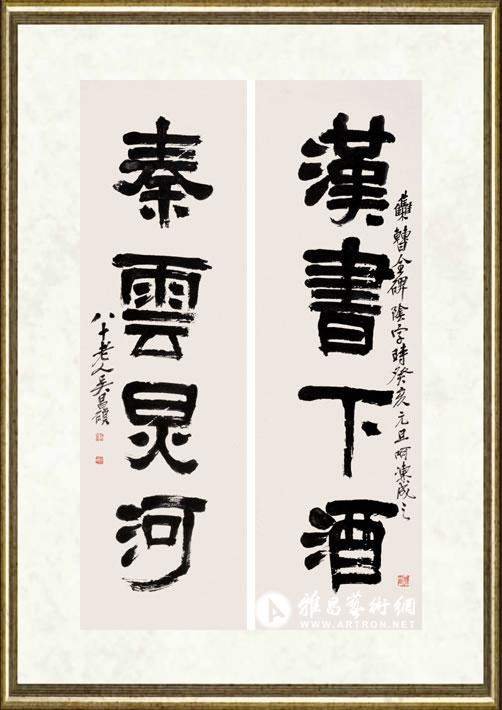 漢書下酒
集曹全碑陰字時癸亥元旦呵凍成之
秦雲炅河
八十老人吳昌碩
雅昌藝術網
WWW.ARTRON.NET